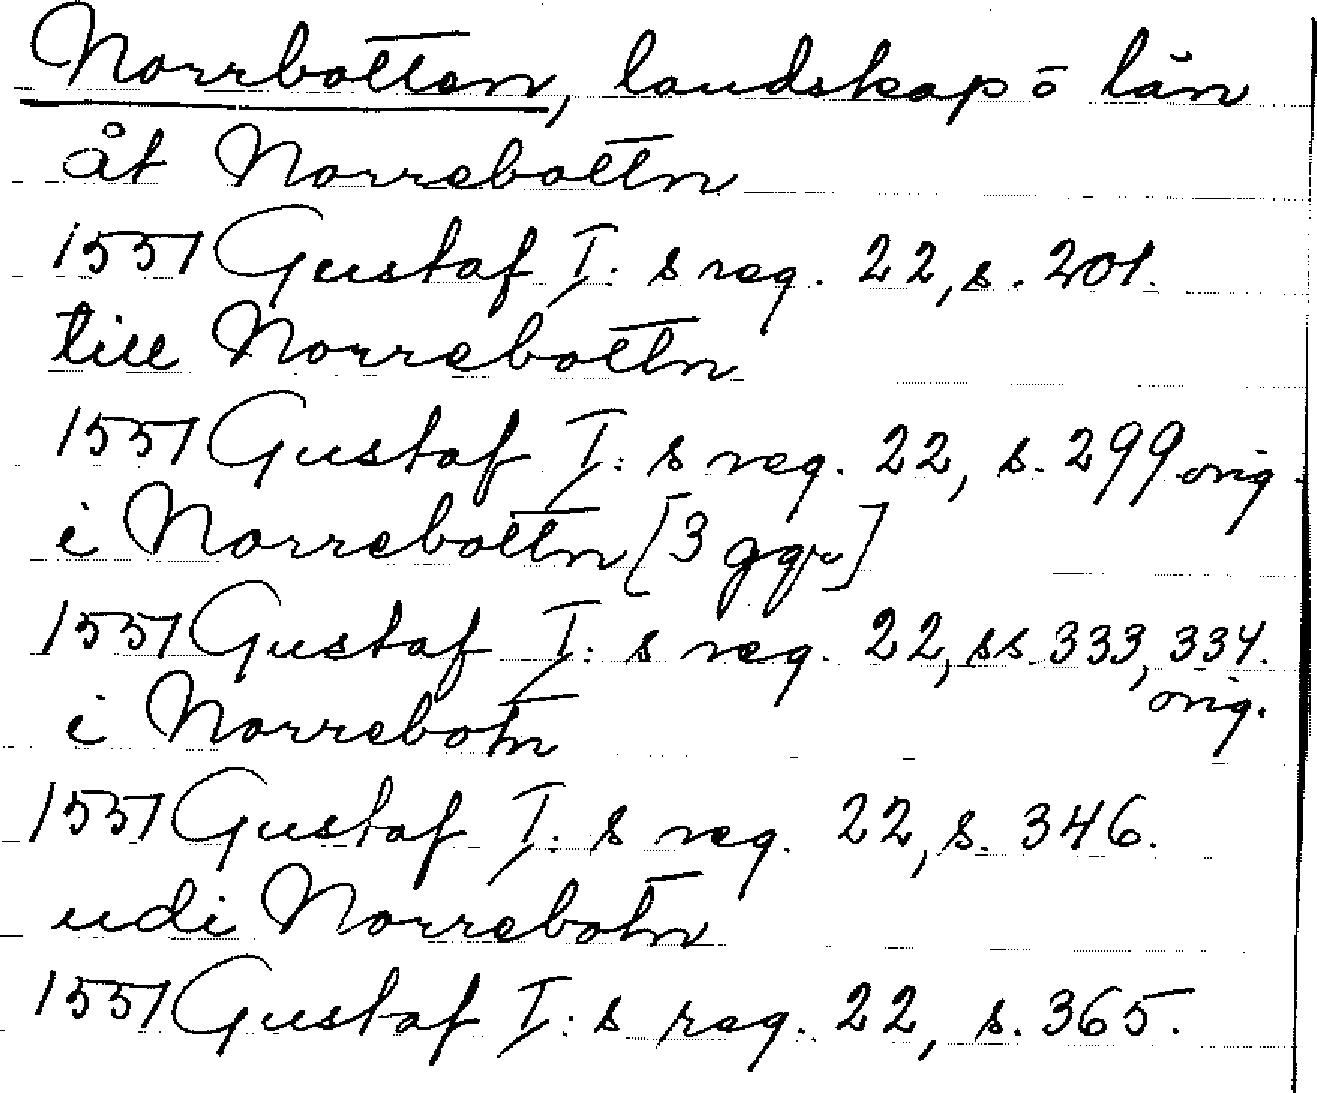 Norrbotten, landskap o län
åt Norrebottn
1551 Gustaf I:s reg. 22, s. 201.
till Norrebottn
1551 Gustaf I:s reg. 22, s. 299 orig.
i Norrebottn [3 ggr]
1551 Gustaf I:s reg. 22, ss. 333, 334.
orig.
i Norrebotn
1551 Gustaf I:s reg. 22, s. 346.
udi Norrebotn
1551 Gustaf I:s reg. 22, s. 365.